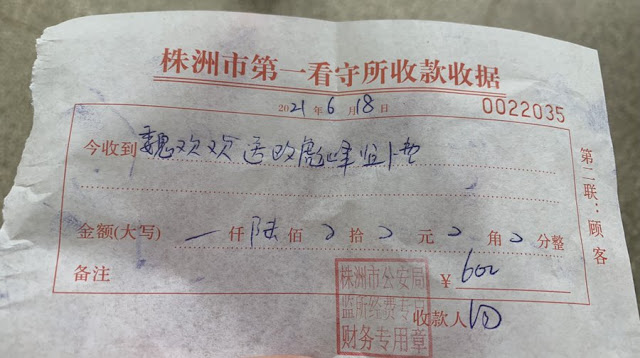 株洲市第一看守所收款收据
2021年6月18日 0022035
今收到魏欢欢送欧彪峰
金额(大写) 一仟陆佰 拾 元 角 分整
备注 ¥600
收款人
第二联:顾客
株洲市公安局
监所经费专户
财务专用章